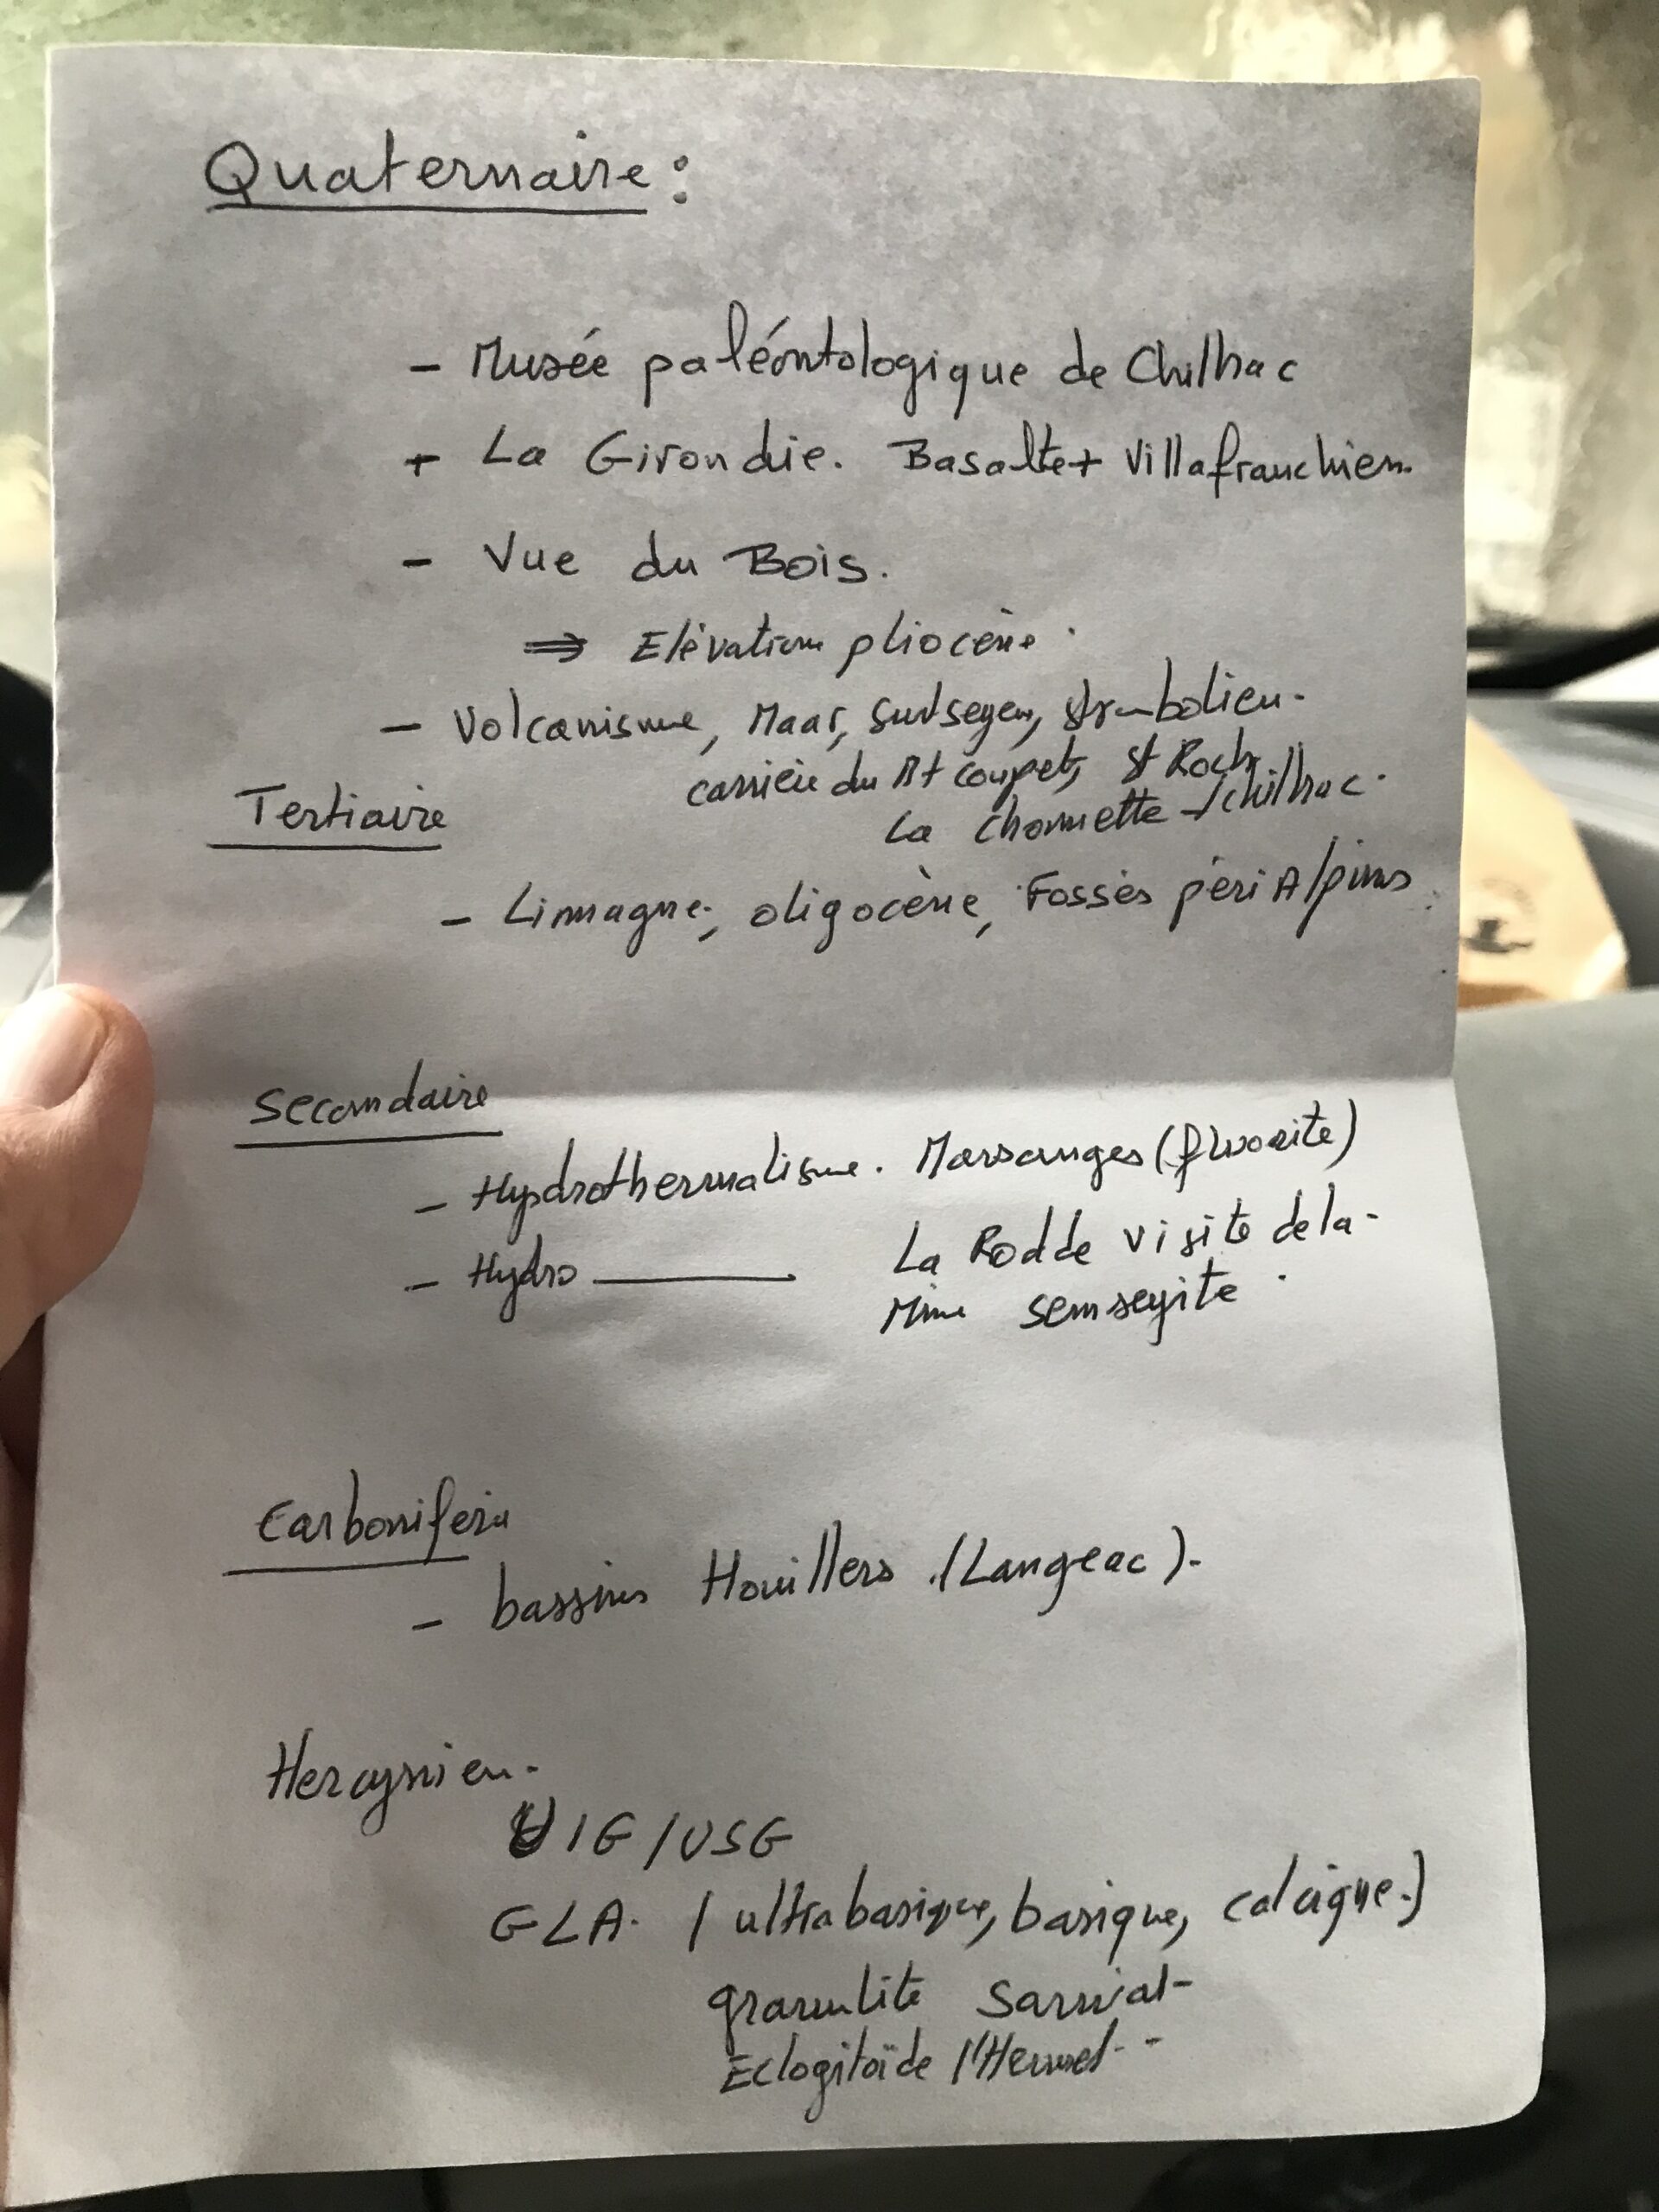 Quaternaire :
- Musée paléontologique de Chilhac
+ La Girondie. Basalte + Villafranchien.
- Vue du Bois.
⇒ Elévation pliocène.
- Volcanisme, Maar, Surtseyen, strombolien.
carrière du Mt Coupet, St Roch
La Chomette / Chilhac.
Tertiaire
- Limagne, oligocène, Fossés péri Alpins.
Secondaire
- Hydrothermalisme. Marsanges (fluorite)
- Hydro ——— La Rodde visite de la
Mine semseyite.
Carbonifère
- bassins Houillers (Langeac).
Hercynien.
UIG / USG
GLA. (ultrabasique, basique, calcique.)
granulite
Eclogitoïde